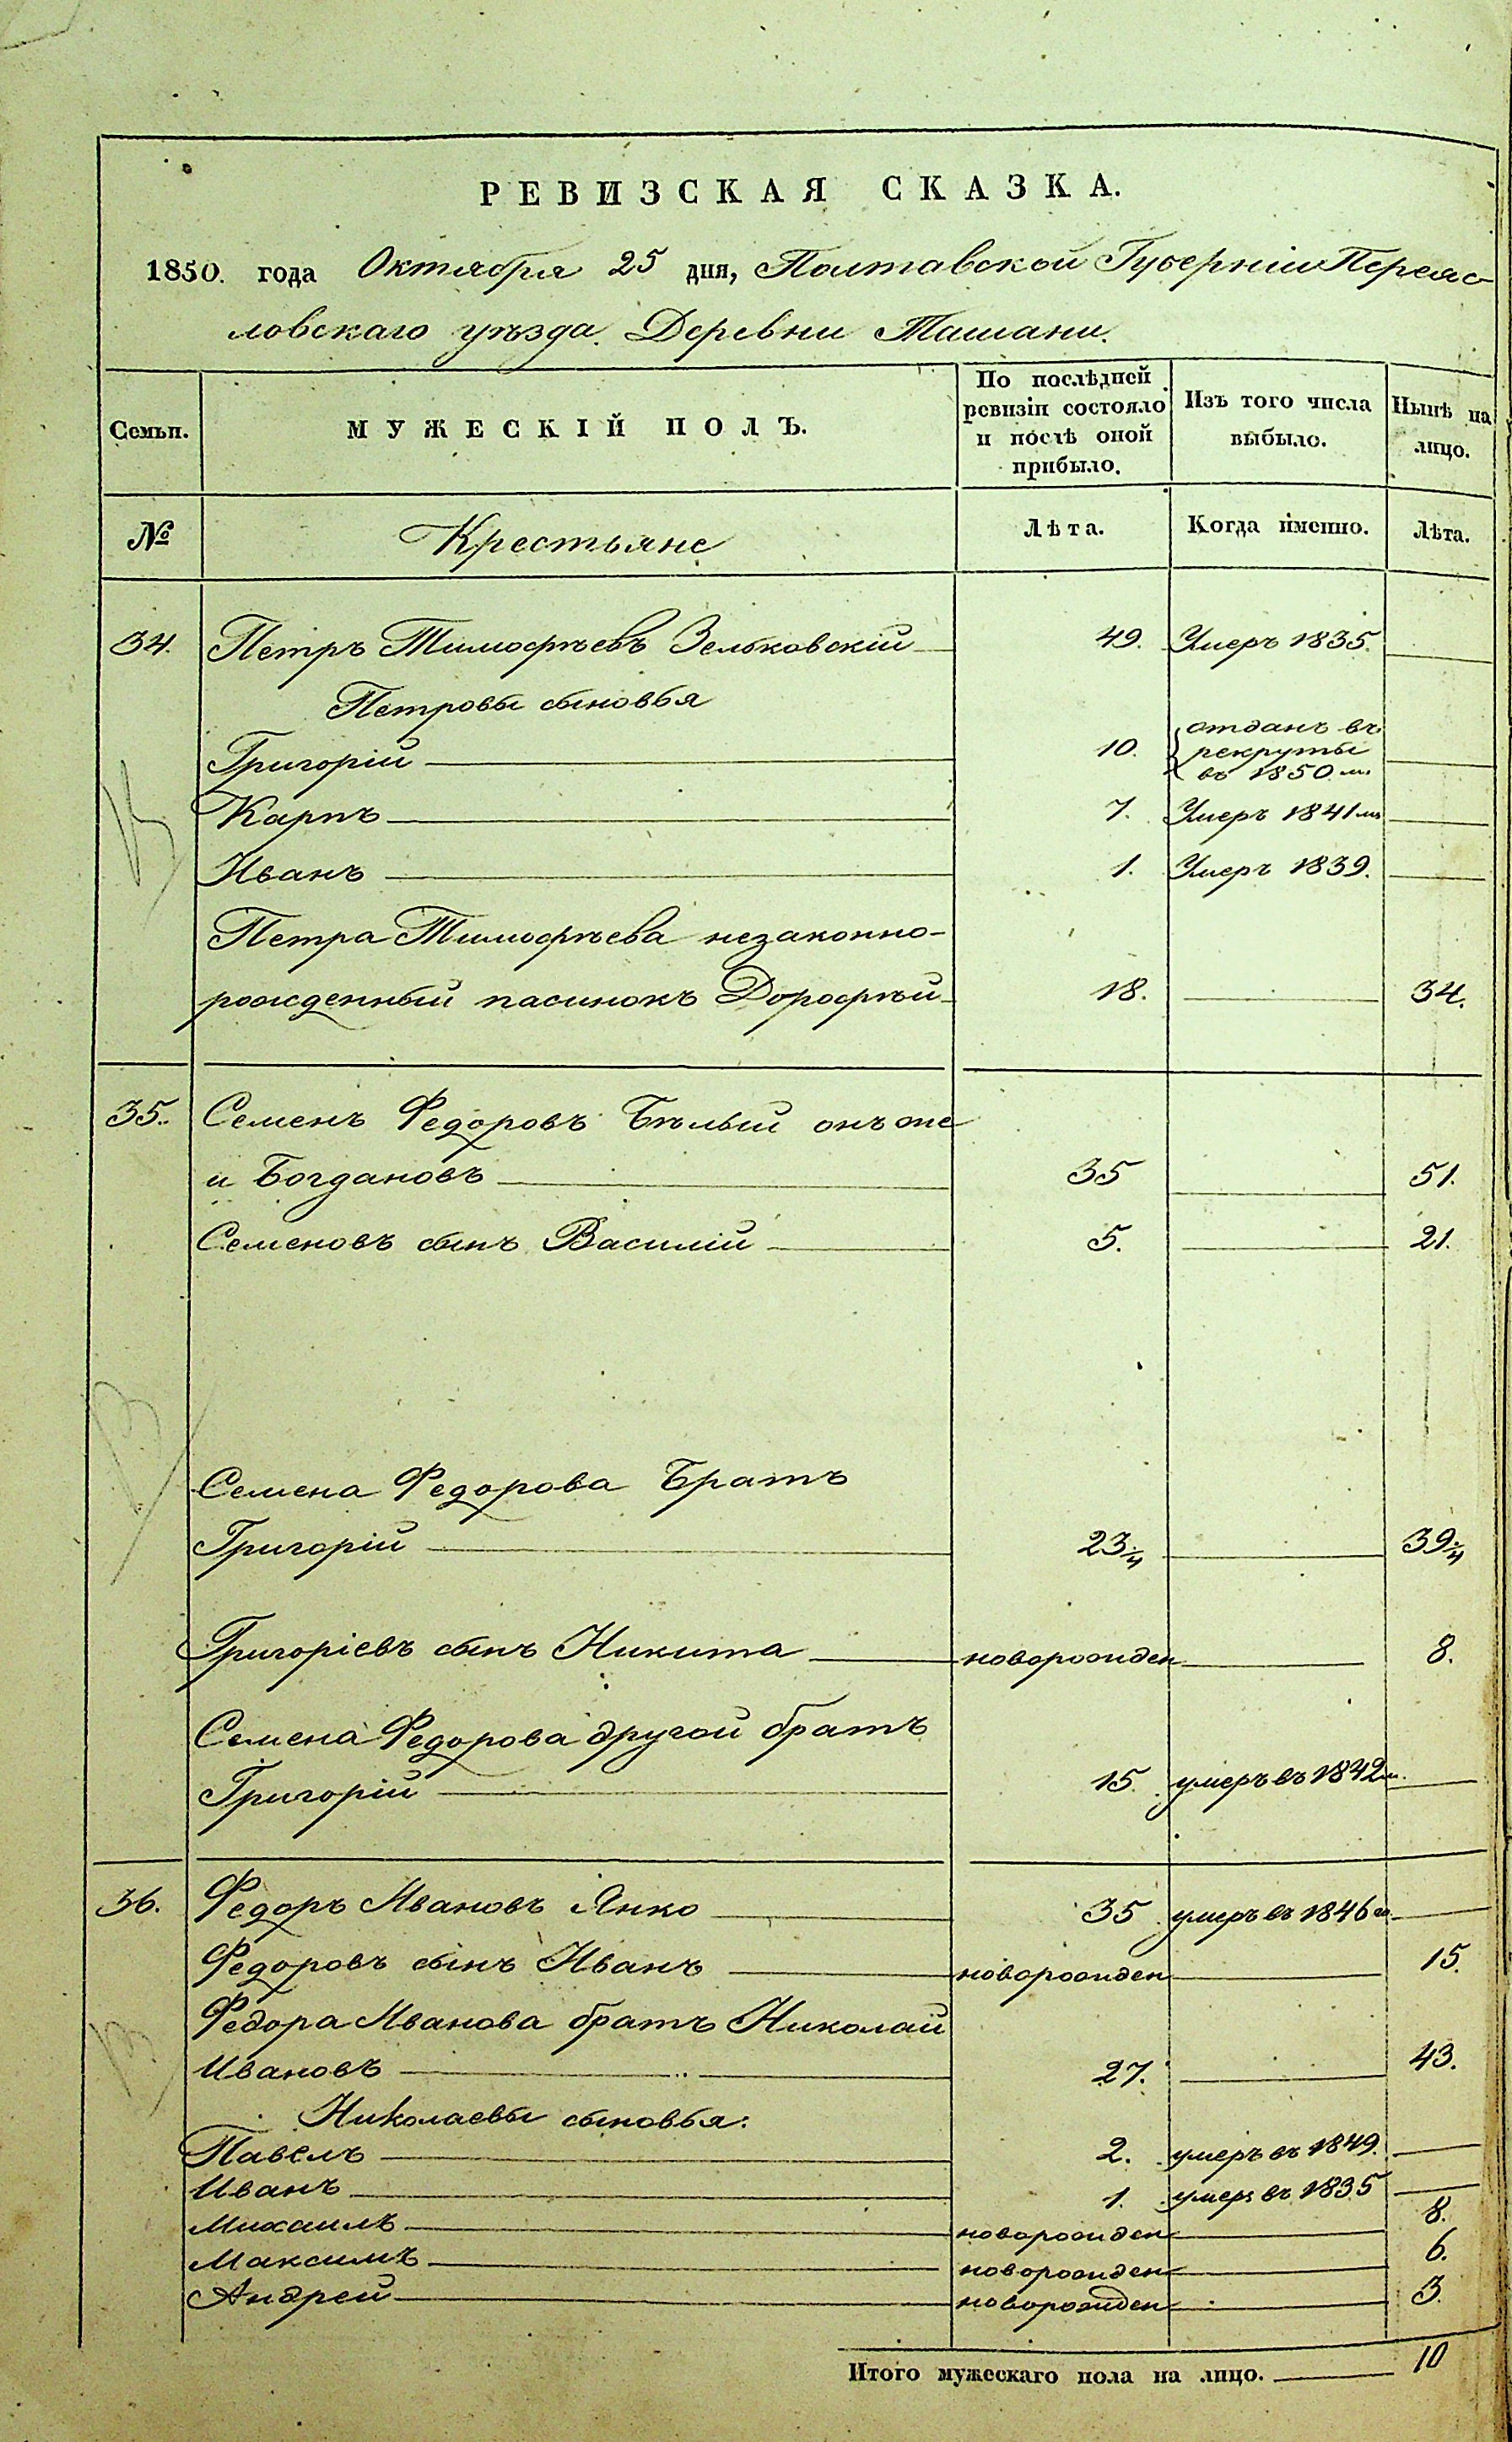 РЕВИЗСКАЯ СКАЗКА.
1850. года Октября 25 дня, Полтавской Губерніи Переяс-
ловскаго уѣзда. Деревни Ташани.
Семьи.
МУЖЕСКІЙ ПОЛЪ.
По послѣдней
ревизіи состояло
и послѣ оной
прибыло.
Изъ того числа
выбыло.
Нынѣ на
лицо.
№ Крестьяне Лѣта. Когда именно. Лѣта.
34. Петръ Тимофѣевъ Зельковскій 49. Умеръ 1835.
Петровы сыновья
Григорій 10. отданъ въ
рекруты
въ 1850 м.
Карпъ 7. Умеръ 1841 мъ
Иванъ 1. Умеръ 1839.
Петра Тимофѣева незаконно-
рожденный пасинокъ Дорофѣй 18. 34.
35. Семенъ Федоровъ Бѣлый онъ же
и Богдановъ 35 51.
Семеновъ сынъ Василій 5. 21.
Семена Федорова Братъ
Григорій 23¾ 39¾
Григоріевъ сынъ Никита новорожден 8.
Семена Федорова другой братъ
Григорій 15. умеръ въ 1842 м.
36. Федоръ Ивановъ Янко 35 умеръ въ 1846
Федоровъ сынъ Иванъ новорожден 15.
Федора Иванова братъ Николай
Ивановъ 27. 43.
Николаевы сыновья:
Павелъ 2. умеръ въ 1849.
Иванъ 1. умеръ въ 1835
Михаилъ новорожден 8.
Максимъ новорожден 6.
Андрей новорожден 3.
Итого мужескаго пола на лицо. 10